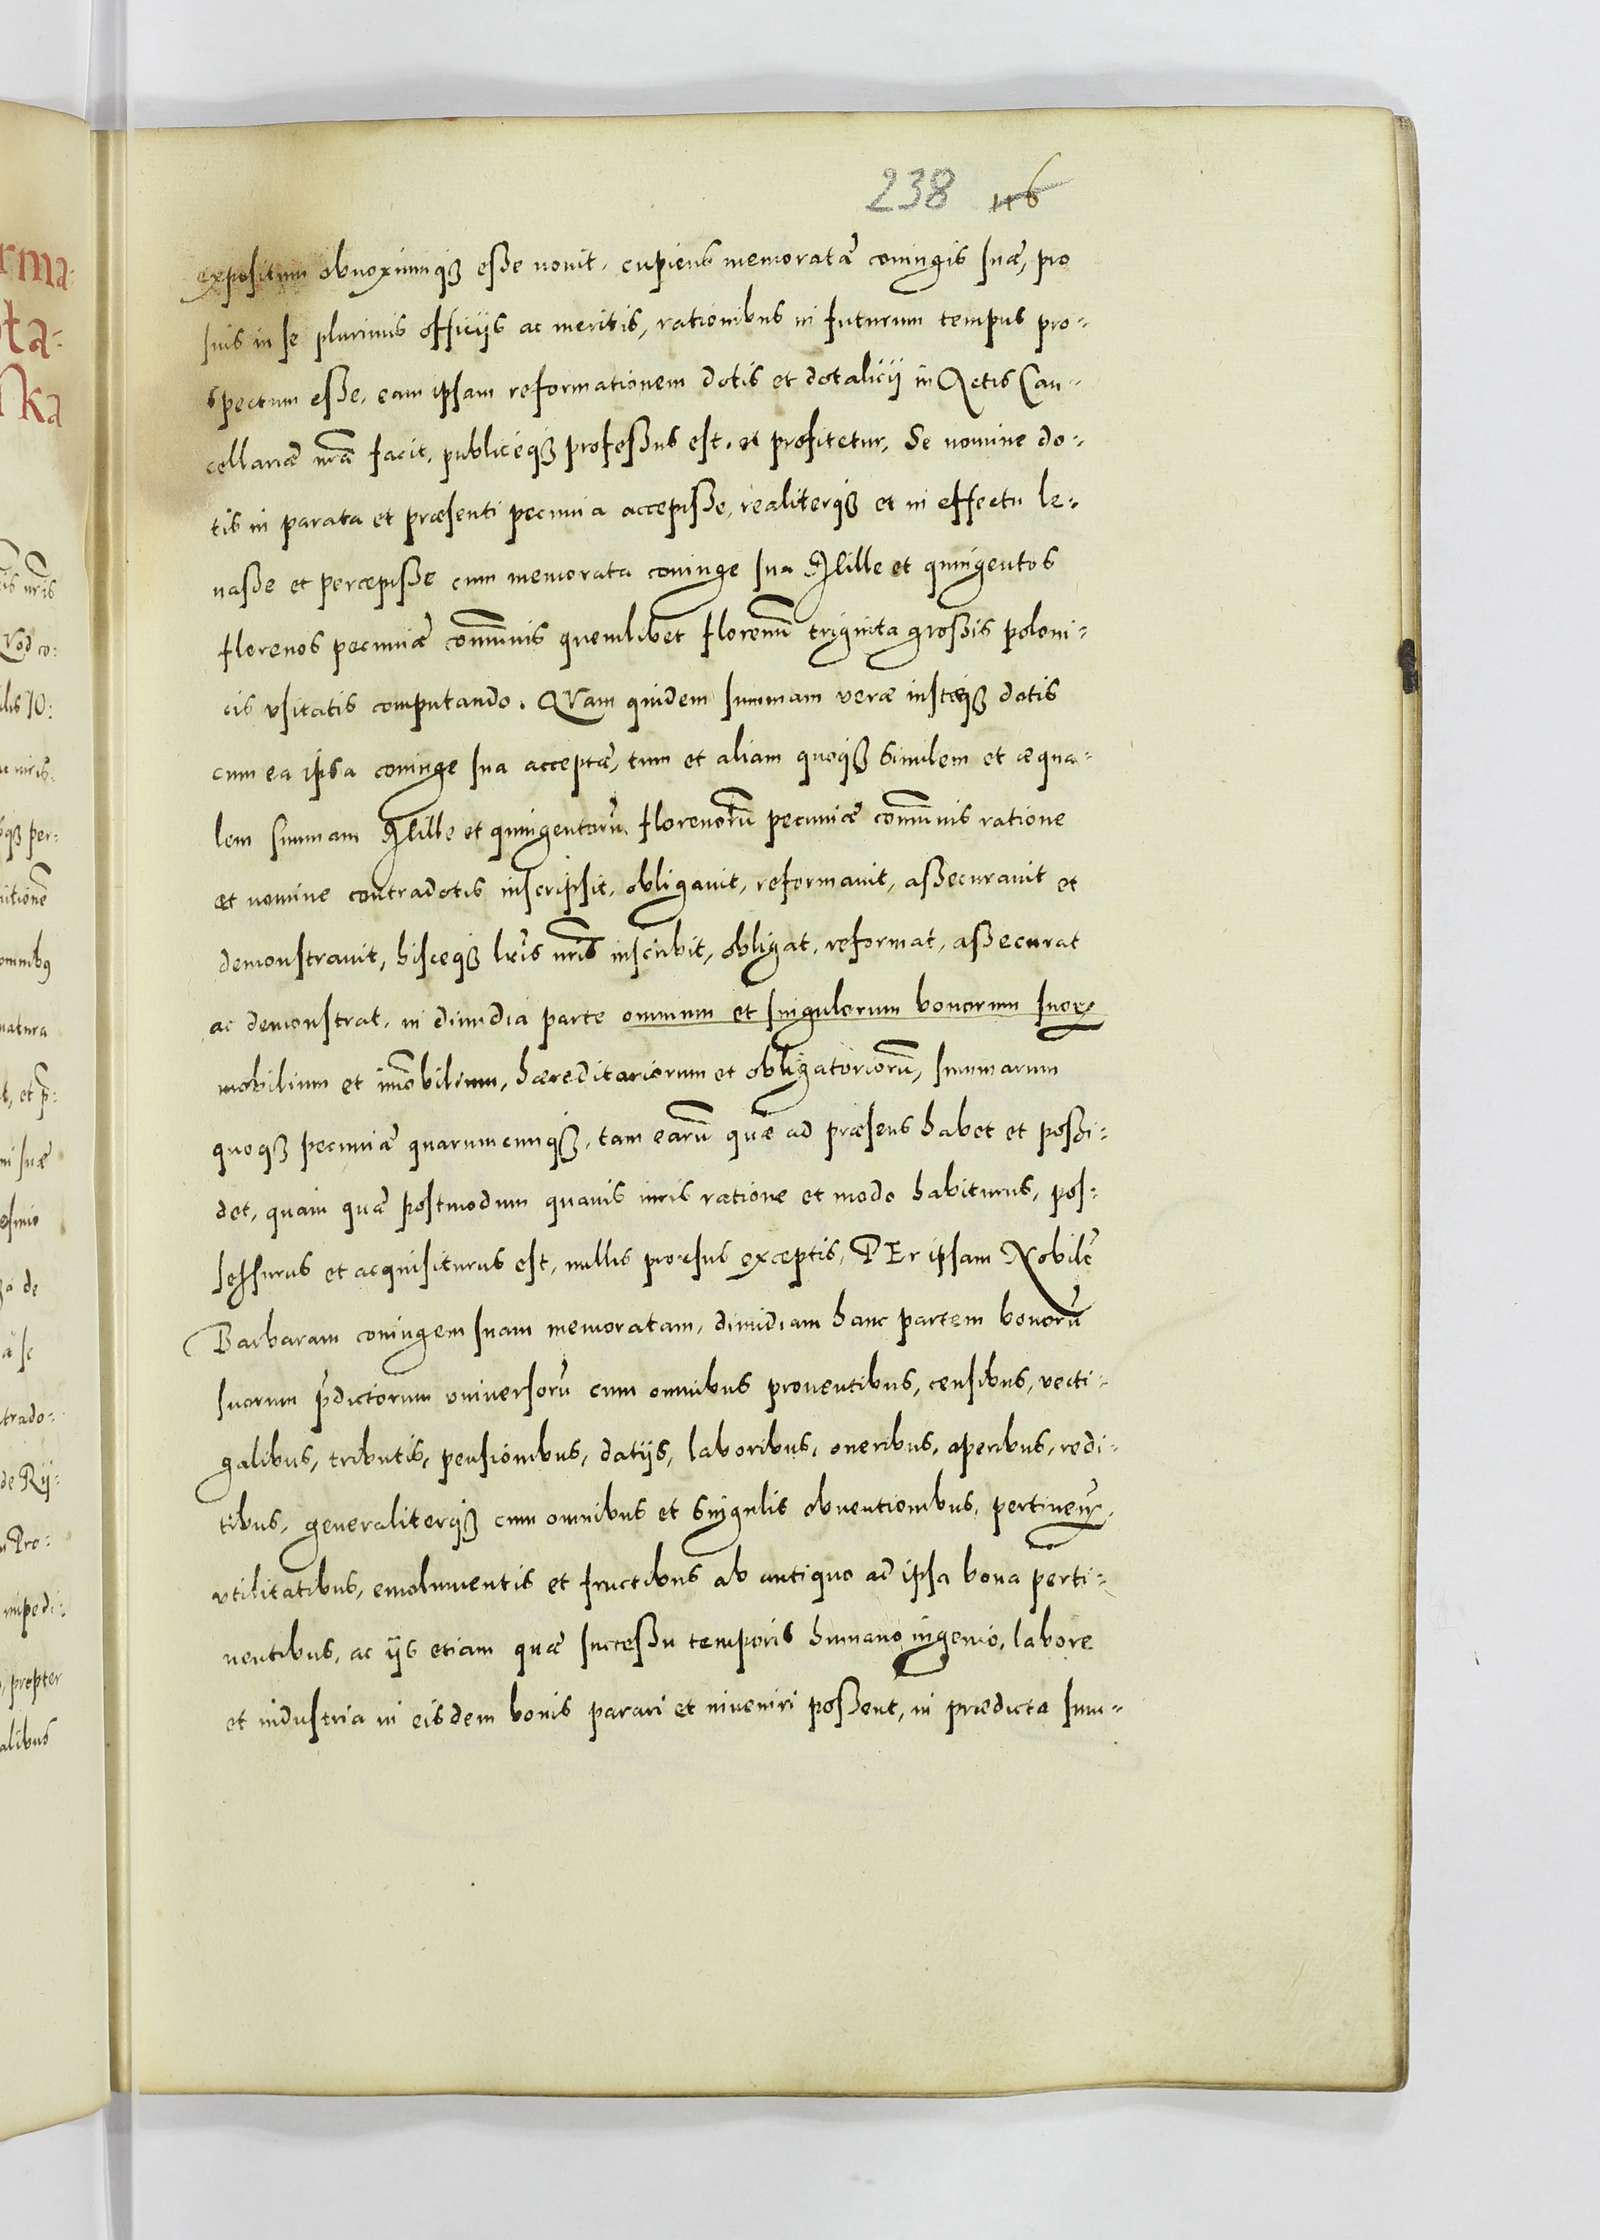 238 116
expositum obnoxiumq₃ esse nouit, cupiens memoratæ coniugis suæ, pro
suis in se plurimis officijs ac meritis, rationibus in futurum tempus pro-
spectum esse, eam ipsam reformationem dotis et dotalicij in Actis Can-
cellariæ nr̃æ facit, publiceq₃ professus est, et profitetur, Se nomine do-
tis in parata et præsenti pecunia accepisse, realiterq₃ et in effectu le-
uasse et percepisse cum memorata coniuge sua Mille et quingentos
florenos pecuniæ com̃unis quemlibet florenũ triginta grossis poloni-
cis vsitatis computando. QVam quidem summam veræ iustæq₃ dotis
cum ea ipsa coniuge sua acceptæ, tum et aliam quoq₃ similem et æqua-
lem summam Mille et quingentorũ florenorũ pecuniæ com̃unis ratione
et nomine contradotis inscripsit, obligauit, reformauit, assecurauit et
demonstrauit, hisceq₃ lr̃is nr̃is inscribit, obligat, reformat, assecurat
ac demonstrat, in dimidia parte omnium et singulorum bonorum suoꝝ
mobilium et im̃obilium, hæreditariorum et obligatoriorũ, summarum
quoq₃ pecuniæ quarumcunq₃, tam earũ quæ ad præsens habet et possi-
det, quam quæ postmodum quauis iuris ratione et modo habiturus, pos-
sessurus et acquisiturus est, nullis prorsus exceptis, PEr ipsam Nobilẽ
Barbaram coniugem suam memoratam, dimidiam hanc partem bonorũ
suorum p̃dictorum vniuersorũ cum omnibus prouentibus, censibus, vecti-
galibus, tributis, pensionibus, datijs, laboribus, oneribus, operibus, redi-
tibus, generaliterq₃ cum omnibus et singulis obuentionibus, pertinen̄,
vtilitatibus, emolumentis et fructibus ab antiquo ad ipsa bona perti-
nentibus, ac ijs etiam quæ successu temporis humano ingenio, labore
et industria in eisdem bonis parari et inueniri possent, in prædicta sum-